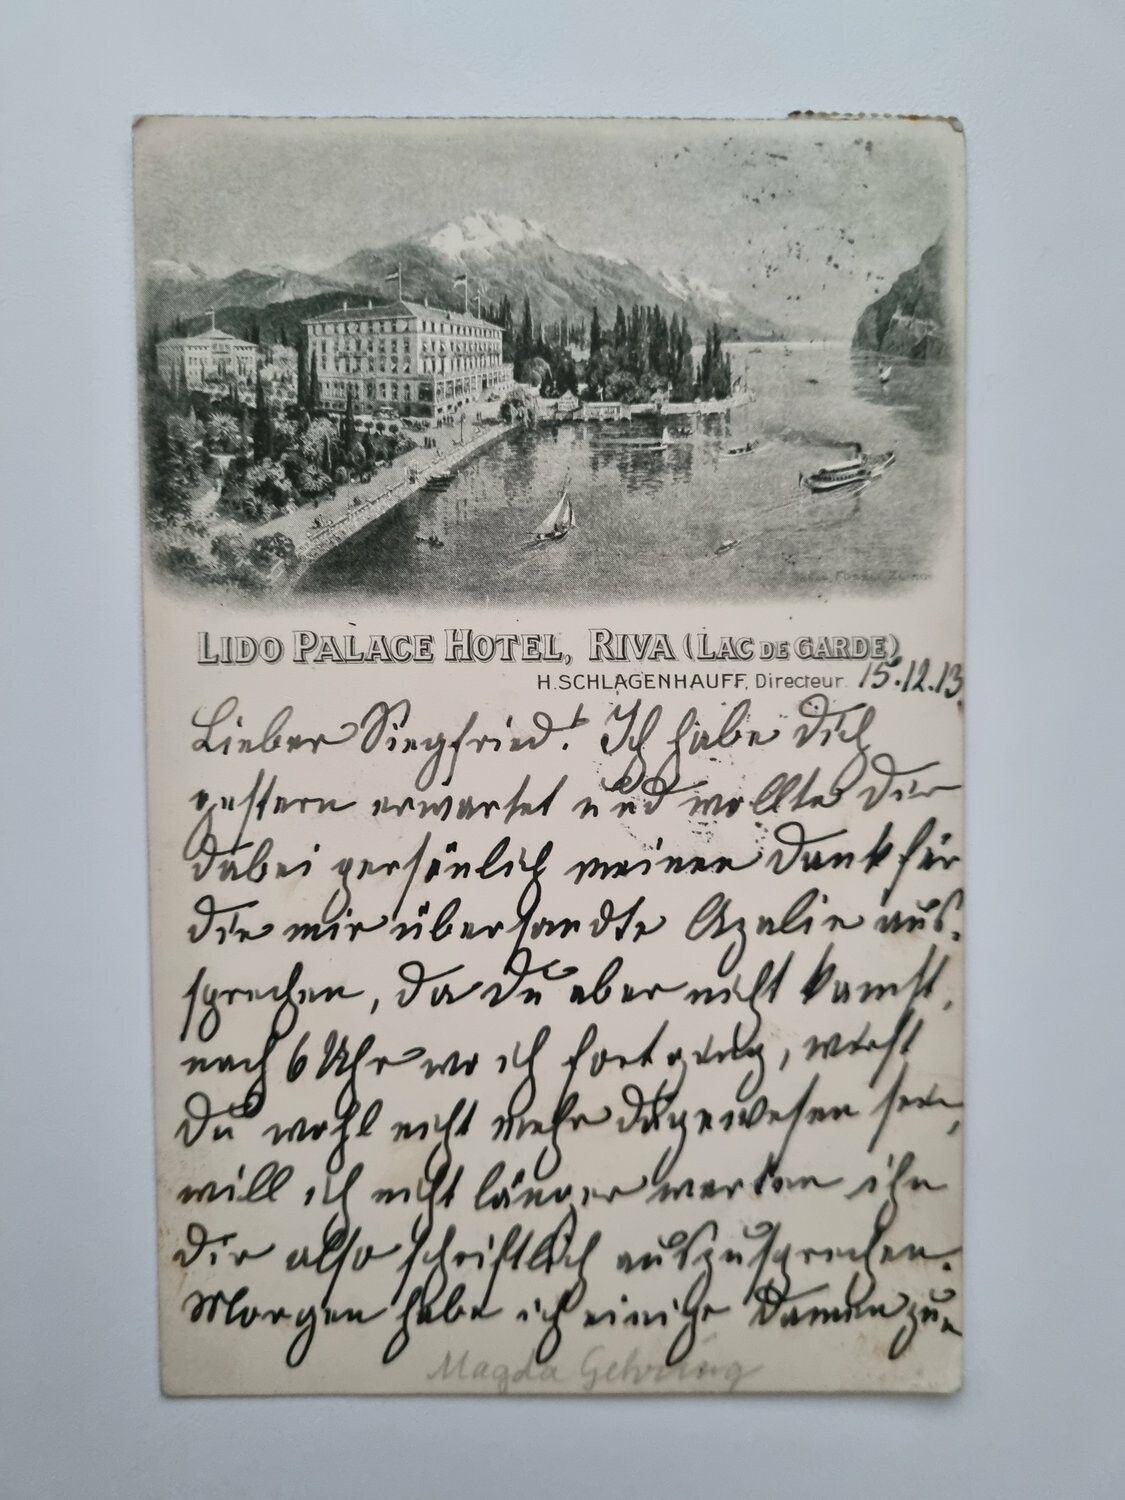 LIDO PALACE HOTEL, RIVA (LAC DE GARDE)
H. SCHLAGENHAUFF, Directeur. 15.12.13.
Lieber Siegfried! Ich habe Dich
gestern erwartet und wollte Dir
dabei persönlich meinen Dank für
die mir übersandte Azalie aus-
sprechen, da Du aber nicht kamst,
nach 6 Uhr wo ich fortging, wirst
Du wohl nicht mehr dagewesen sein,
will ich nicht länger warten ihn
Dir also schriftlich auszusprechen.
Morgen habe ich einige Damen zum
Magda Gehring